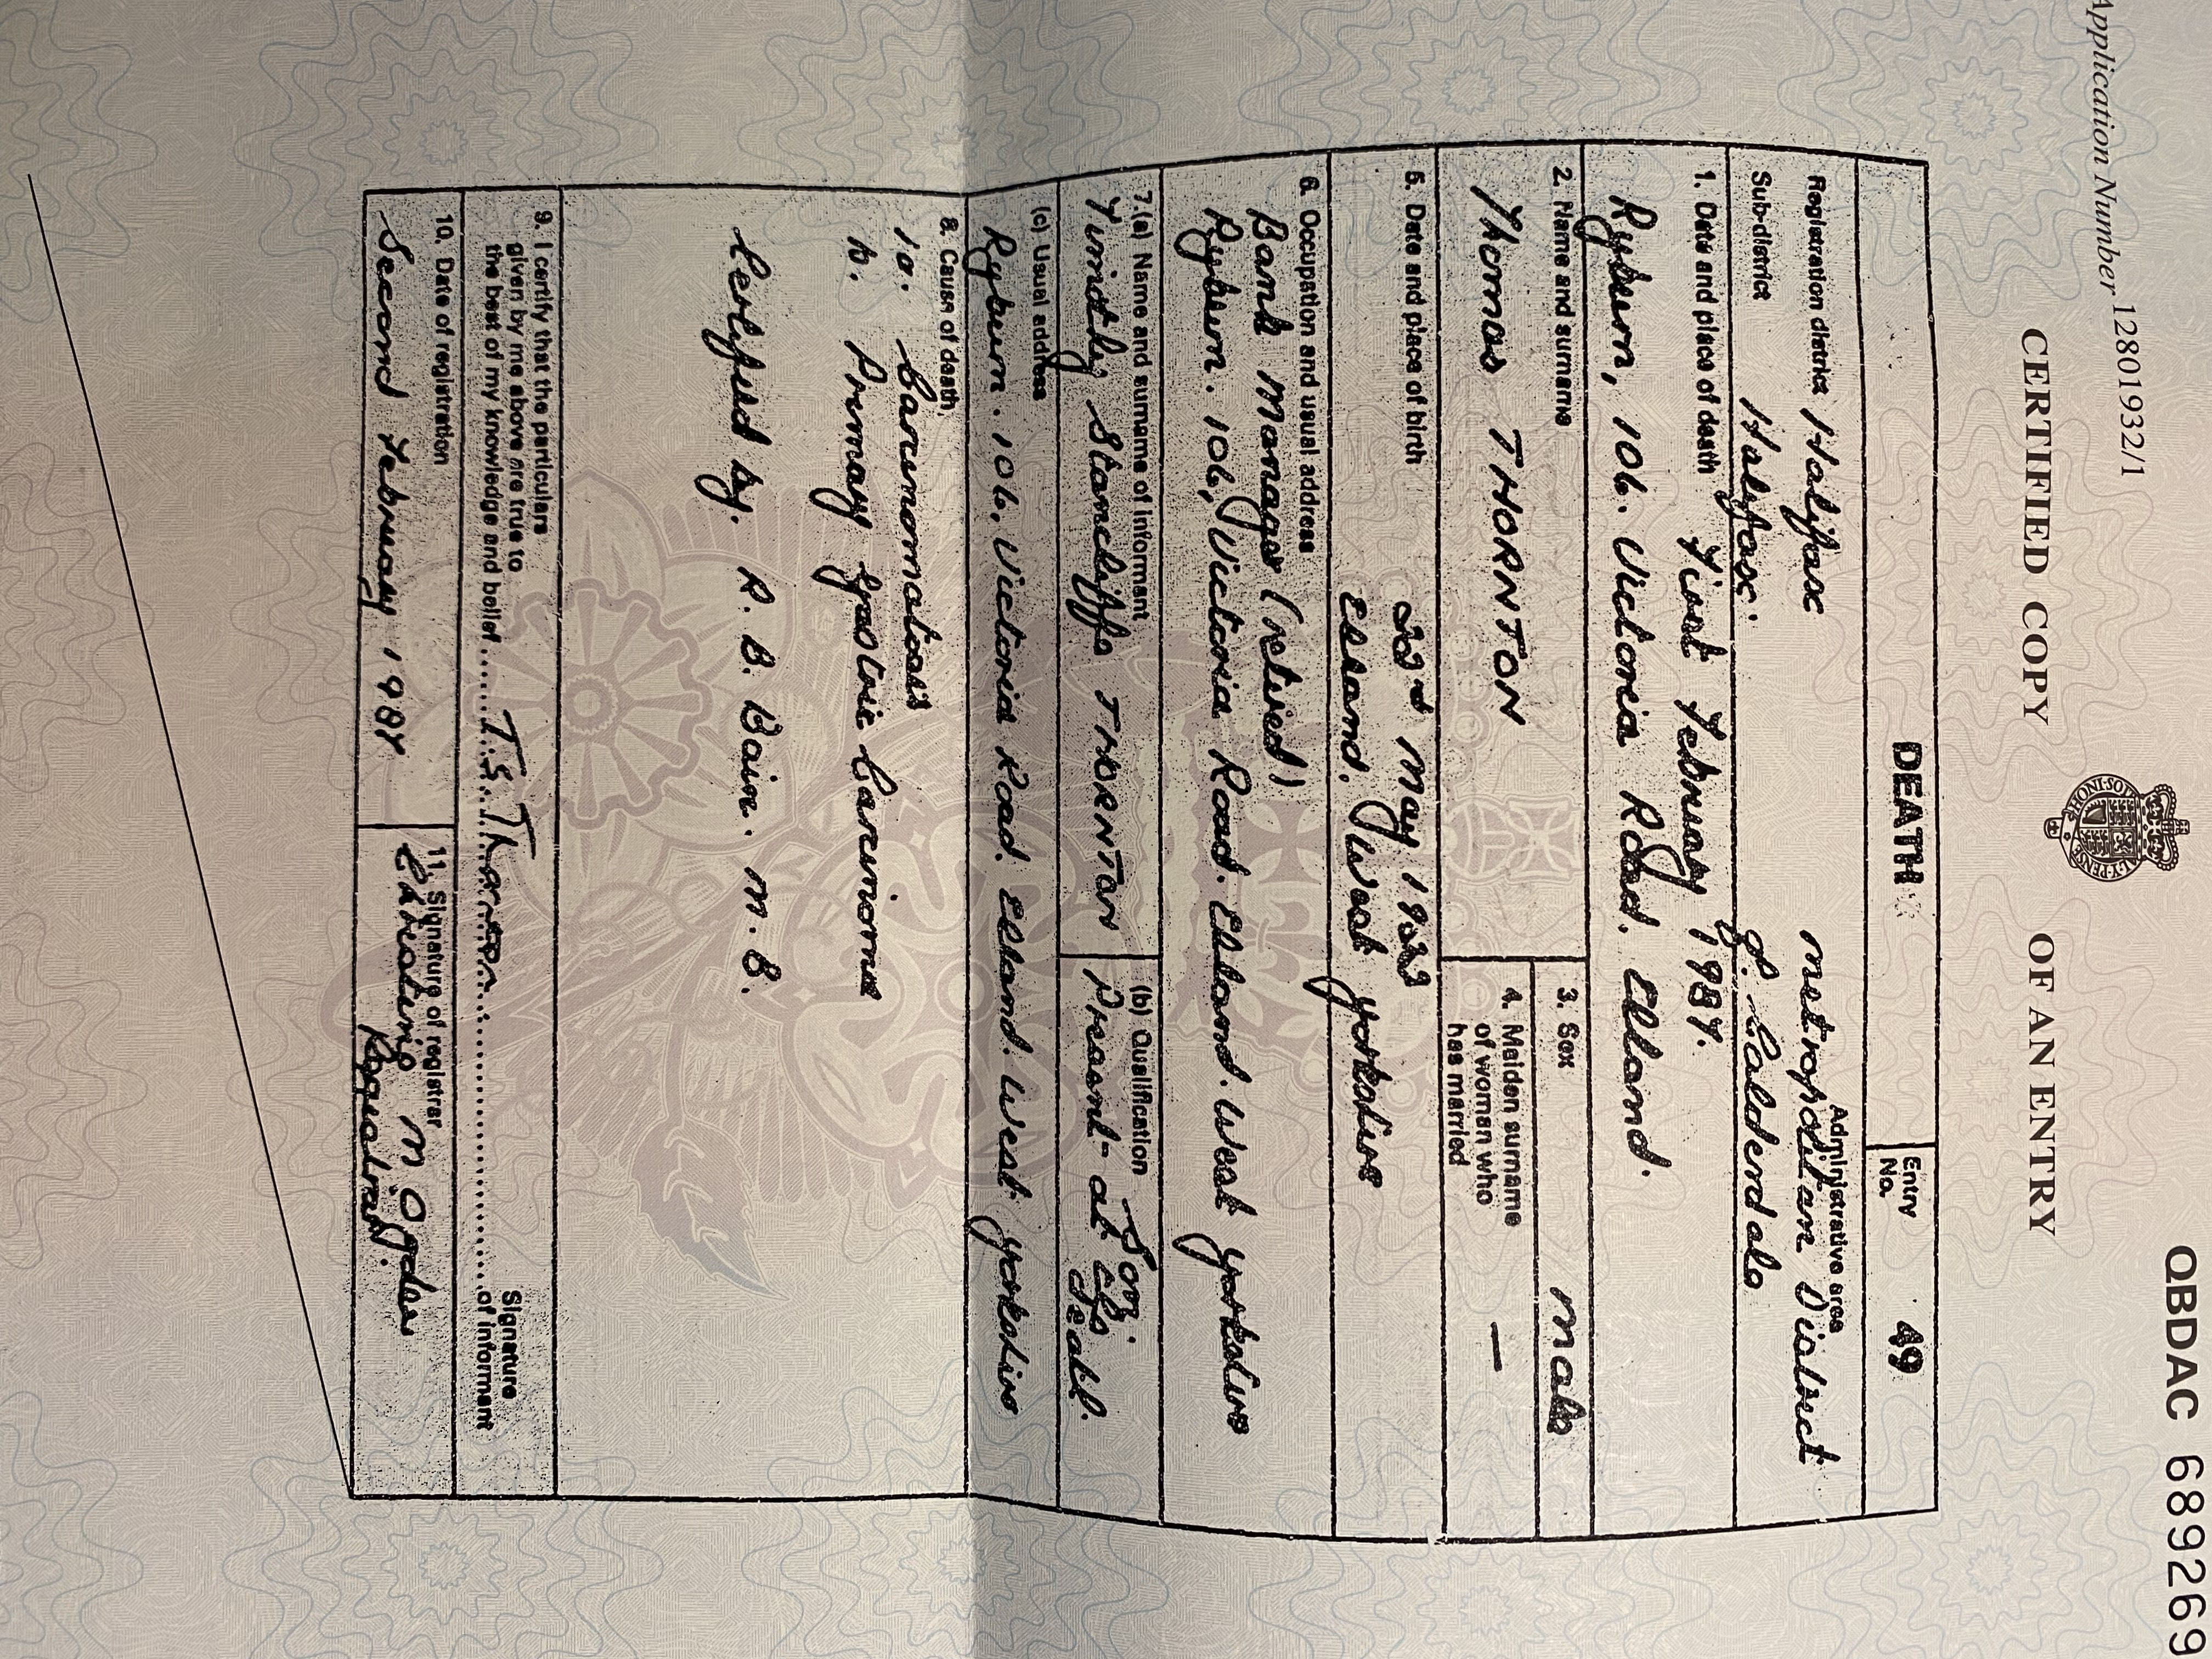 Application Number 12801932/1
QBDAC 689269
CERTIFIED COPY OF AN ENTRY
DEATH
Entry No. 49
Registration district Halifax
Administrative area
Metropolitan District
Sub-district Halifax.
of Calderdale
1. Date and place of death First February 1984.
Ryburn, 106. Victoria Road. Elland.
2. Name and surname
Thomas THORNTON
3. Sex Male
4. Maiden surname
of woman who
has married —
5. Date and place of birth
22nd May 1923
Elland. West Yorkshire
6. Occupation and usual address
Bank Manager (retired)
Ryburn. 106, Victoria Road. Elland. West Yorkshire
7.(a) Name and surname of informant
Timothy Stancliffe THORNTON
(b) Qualification Son.
Present at the
death.
(c) Usual address
Ryburn. 106, Victoria Road. Elland. West Yorkshire
8. Cause of death
1a. Carcinomatosis
b. Primary Gastric Carcinoma
Certified by. R. B. Bain. M. B.
9. I certify that the particulars
given by me above are true to
the best of my knowledge and belief
T.S. Thornton
Signature
of informant
10. Date of registration
Second February 1984
11. Signature of registrar
Christine M Ogden
Registrar.